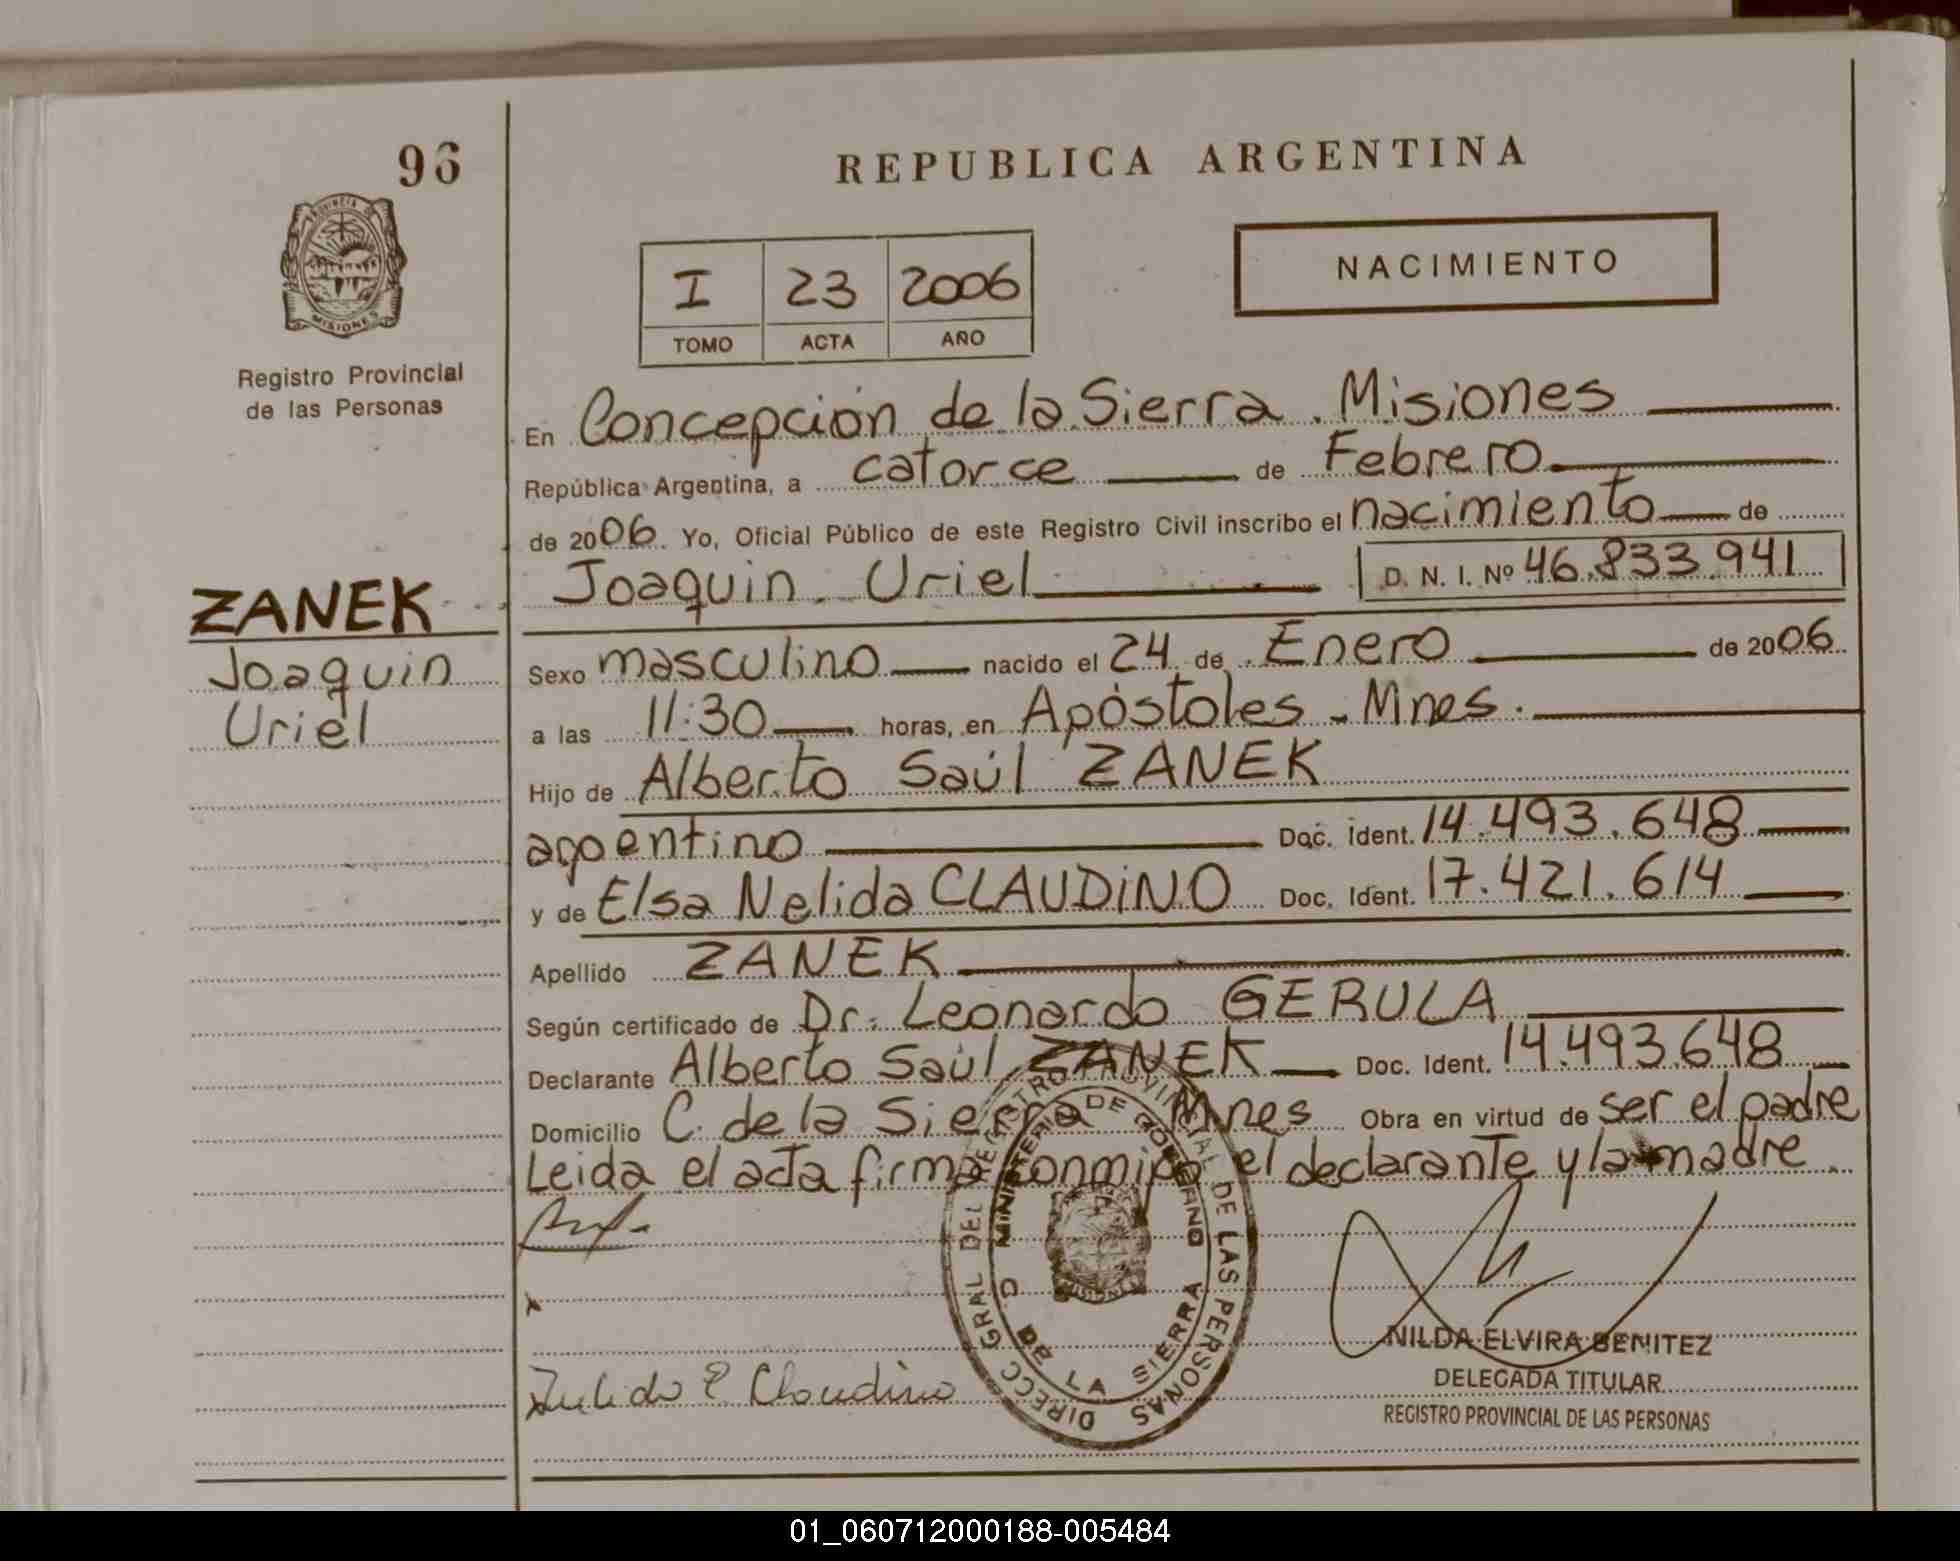 96
REPUBLICA ARGENTINA
PROVINCIA DE
MISIONES
Registro Provincial
de las Personas
I 23 2006
TOMO ACTA AÑO
NACIMIENTO
En Concepción de la Sierra. Misiones
República Argentina, a catorce de Febrero
de 2006. Yo, Oficial Público de este Registro Civil inscribo el nacimiento de
Joaquin Uriel D. N. I. Nº 46.833.941
ZANEK
Joaquin
Uriel
Sexo masculino nacido el 24 de Enero de 2006
a las 11:30 horas, en Apóstoles - Mnes.
Hijo de Alberto Saúl ZANEK
argentino Doc. Ident. 14.493.648
y de Elsa Nelida CLAUDiNO Doc. Ident. 17.421.614
Apellido ZANEK
Según certificado de Dr. Leonardo GERULA
Declarante Alberto Saúl ZANEK Doc. Ident. 14.493.648
Domicilio C. de la Sierra Mnes Obra en virtud de ser el padre
Leida el acta firma conmigo el declarante y la madre.
DIRECC GRAL DEL REGISTRO PROVINCIAL DE LAS PERSONAS
MINISTERIO DE GOBIERNO
C. DE LA SIERRA
MISIONES
E Claudino
NILDA ELVIRA BENITEZ
DELEGADA TITULAR
REGISTRO PROVINCIAL DE LAS PERSONAS
01_060712000188-005484